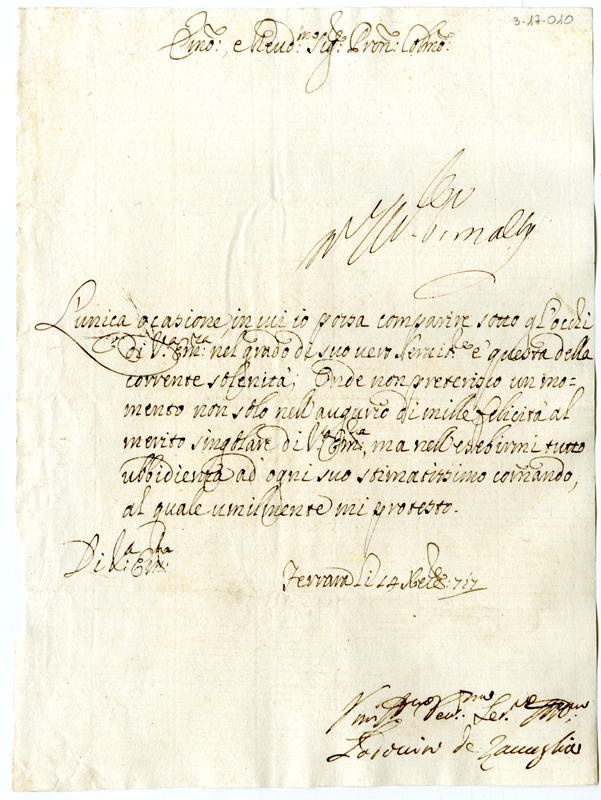 3-17-010
Emo: e Revd:mo Sigr: Pron: Colmo:
L'unica ocasione in cui io possa comparire sotto gl'occhi
di V:ra Em:za nel grado di suo vero Servitre è questa della
corrente solenità; Onde non preterisco un mo-
mento non solo nell'augurio di mille felicità al
merito singolare di V:ra Em:za, ma nell'esebirmi tutto
ubbidienza ad ogni suo stimatissimo comando,
al quale umilmente mi protesto.
Di V:ra Em:za
Ferrara li 14 Xbre: 717
Umi: Devmo: Ser:re
de